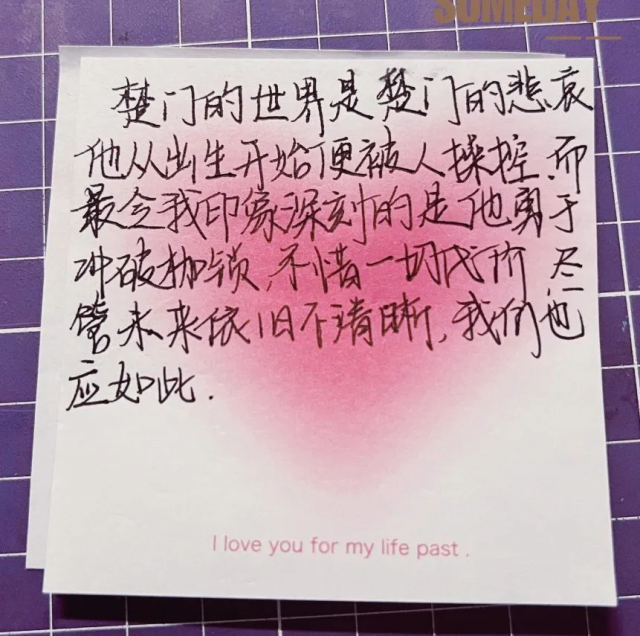 SOMEDAY
楚门的世界是楚门的悲哀
他从出生开始便被人操控.而
最令我印象深刻的是他勇于
冲破枷锁,不惜一切代价,尽
管未来依旧不清晰,我们也
应如此.
I love you for my life past .